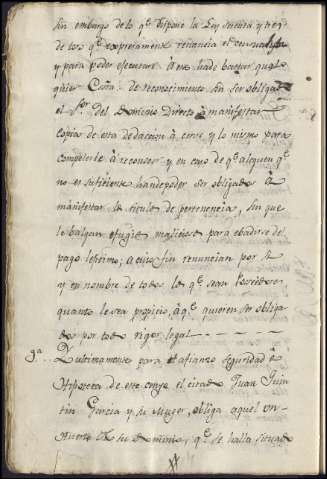 sin embargo de lo q.e dispone la Ley sesenta y tres
de toro q.e expresamente renuncia el
y para poder executar a de bastar qual
quier Copia de reconocimiento sin ser obligado
el S.or del Dominio Directo a manifestar
copias de esta dedacion a censo y lo mismo para
compelerle a reconoser y en caso de q.e alguen q.e
no es suficiente han de poder ser obligados a
manifestar los titulos de pertenencia, sin que
lo balgan efugios maliciosos para ebadirse de
pago lejitimo; a cuio fin renuncian por si
y en nombre de todos los q.e sean Poseedores
quanto le sea propicio, a q.e quieren ser obliga
dos por todo rigor legal
9.a Y ultimamente para el afianzo seguridad e
Hipoteca de este censo el citado Juan
tin Garcia y su Muger, obliga aquel un
Huerto de su dominio, q.e se halla situado